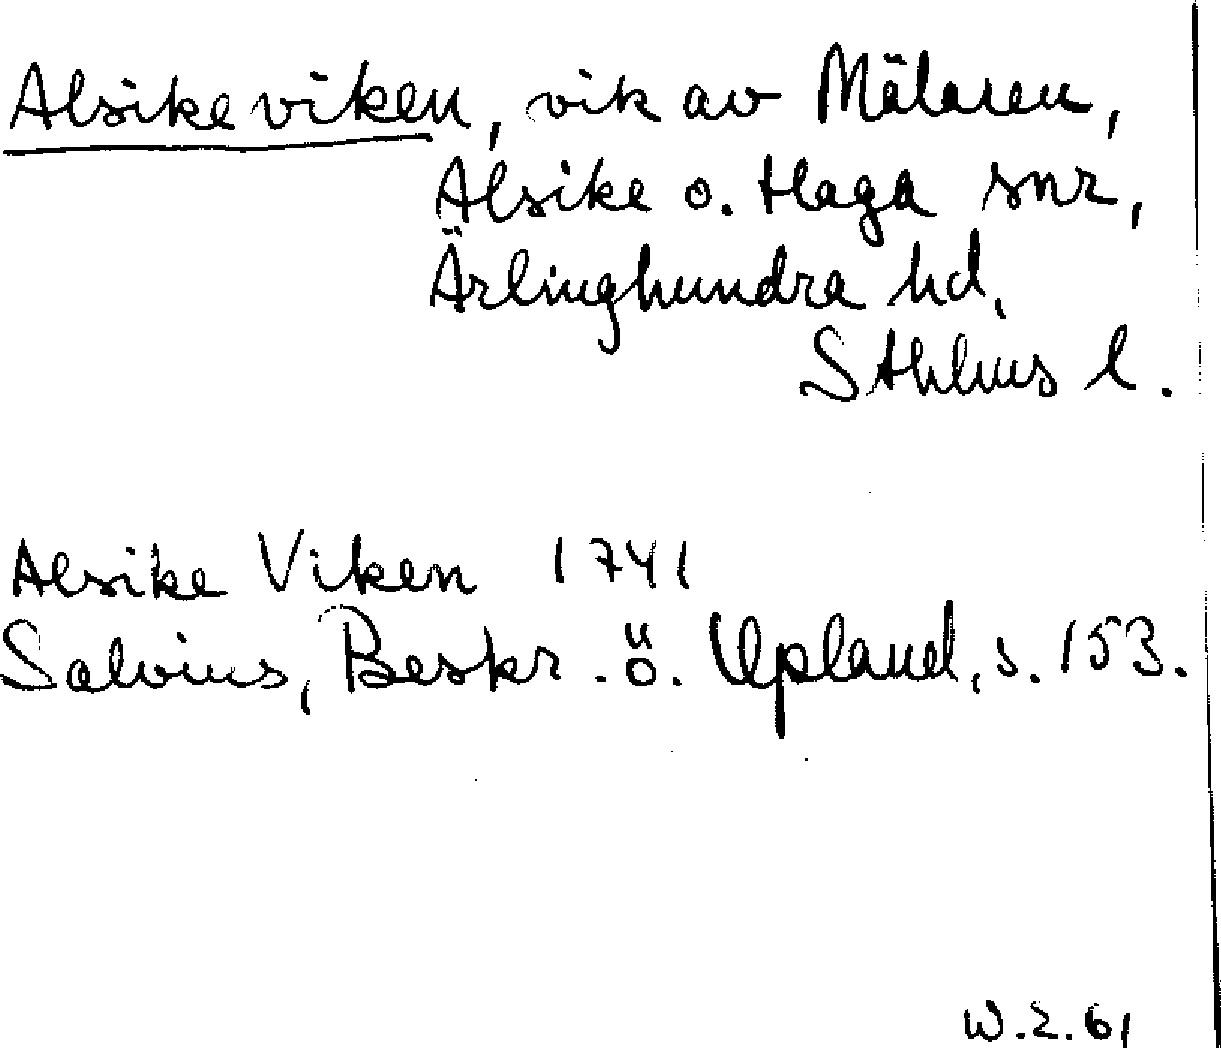 Alsikeviken, vik av Mälaren,
Alsike o. Haga snr,
Ärlinghundra hd,
Sthlms l.
Alsike Viken 1741
Salvius, Beskr. ö. Upland, s. 153.
W.2.61